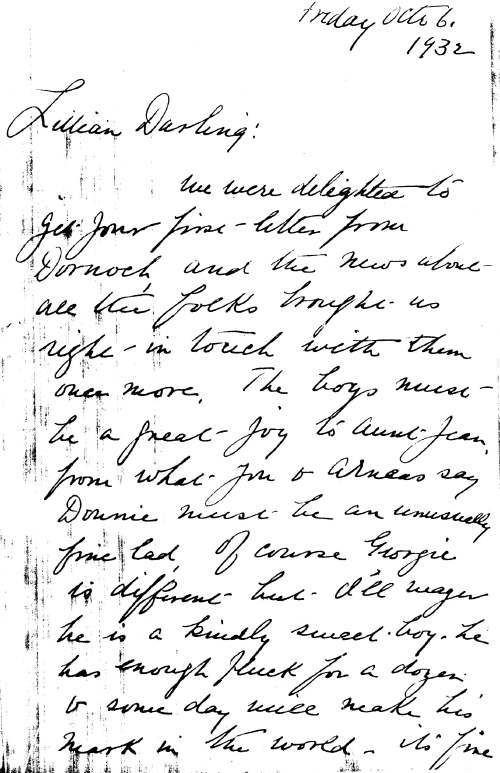 Friday Oct 6.
1932
Lillian Darling:
we were delighted to
get your first letter from
Dornoch, and the news about
all the folks brought us
right in touch with them
once more. The boys must
be a great joy to Aunt Jean,
from what you & Aeneas say
Donnie must be an unusually
fine lad, Of course Georgie
is different but I'll wager
he is a kindly sweet boy. he
has enough pluck for a dozen
& some day will make his
mark in the world - its fine